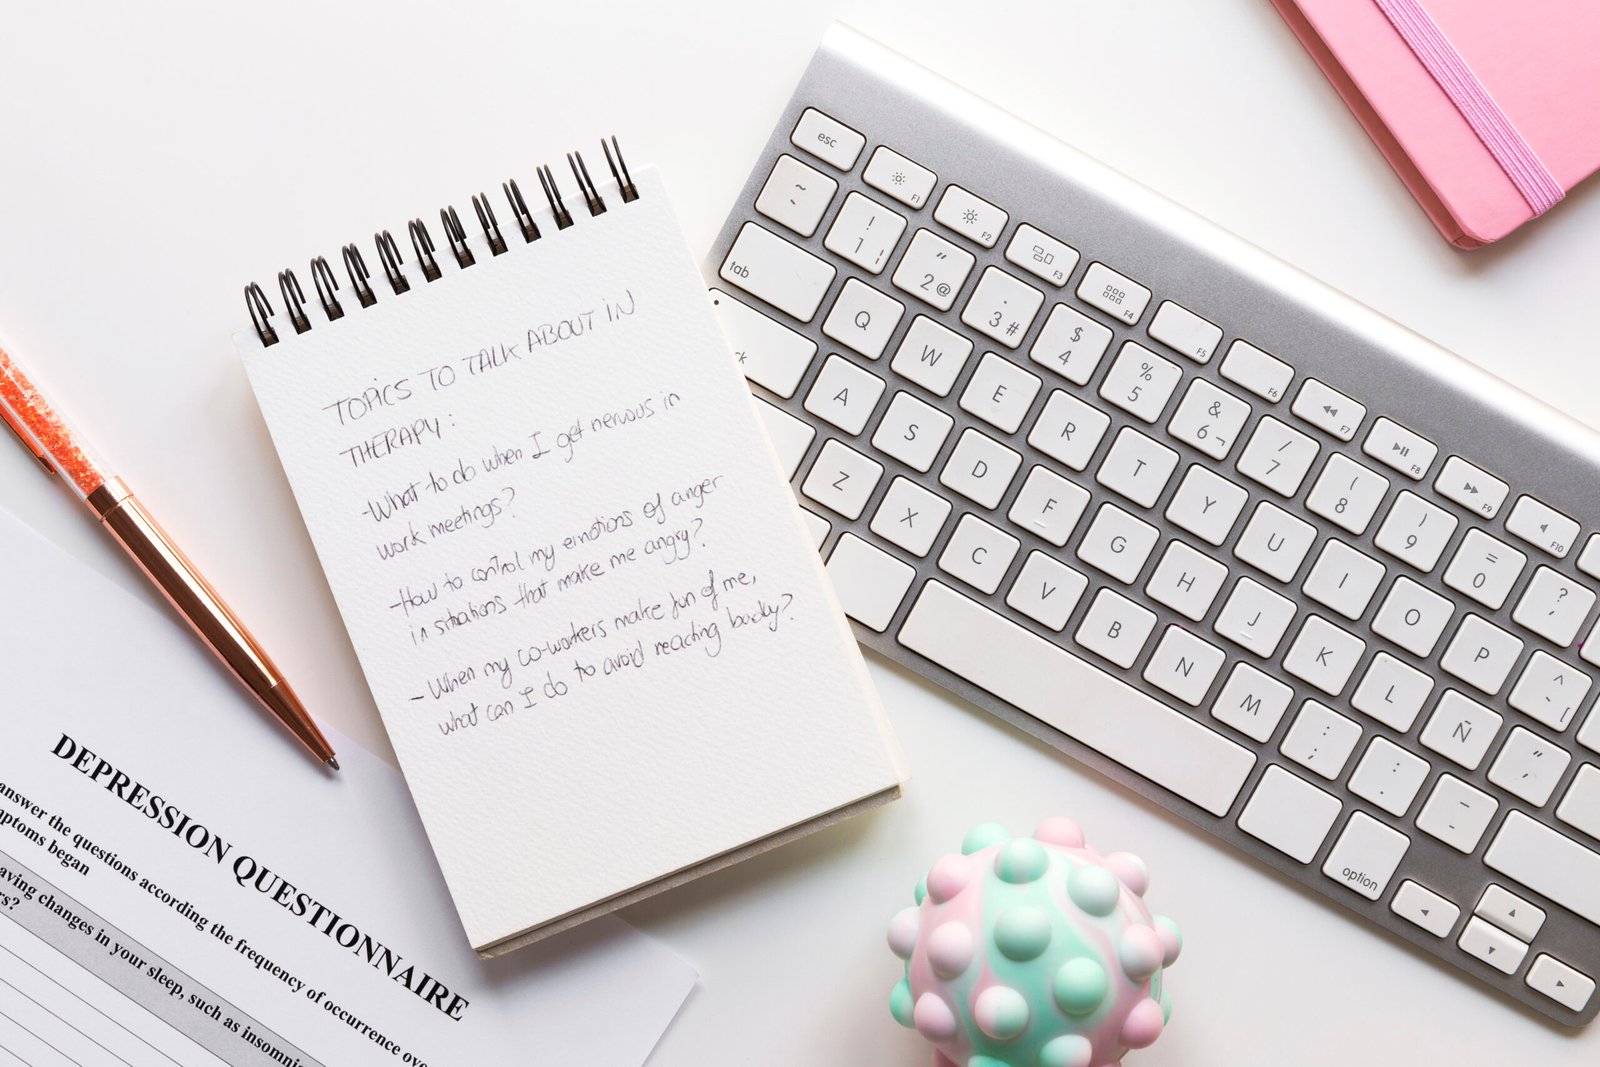 TOPICS TO TALK ABOUT IN
THERAPY:
-What to do when I get nervous in
work meetings?
-How to control my emotions of anger
in situations that make me angry?
- When my co-workers make fun of me,
what can I do to avoid reacting badly?
DEPRESSION QUESTIONNAIRE
answer the questions according the frequency of occurrence
began
changes in your sleep, such as
esc
F1
F2
F3
F4
F5
F6
F7
F8
F9
F10
~
! 1 ¦
" 2 @
· 3 #
$ 4
% 5
& 6 ¬
/ 7
( 8
) 9
= 0
? '
tab
Q W E R T Y U I O P ^ ` [
A S D F G H J K L Ñ
Z X C V B N M ; , : . _ -
option